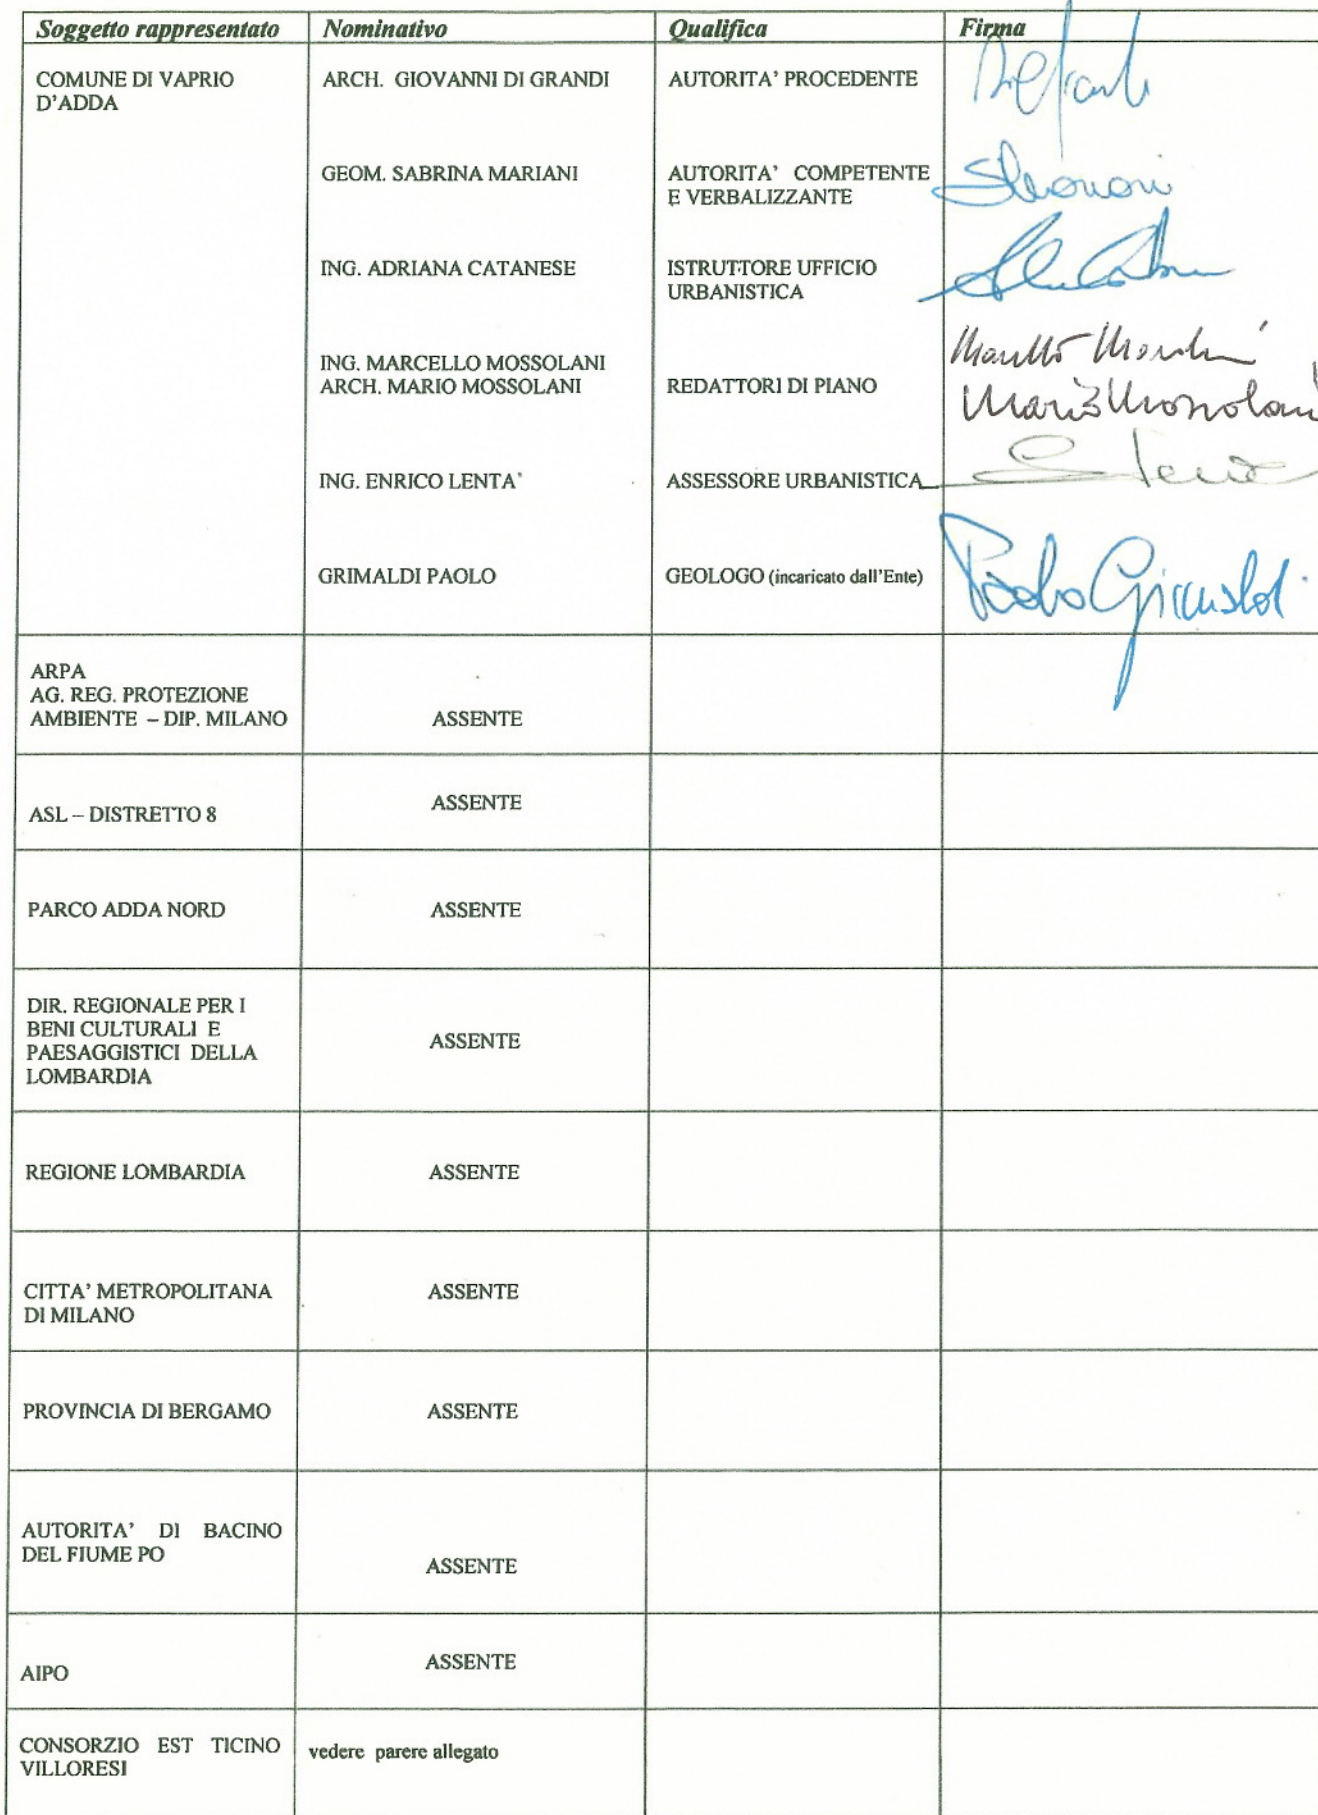 Soggetto rappresentato Nominativo Qualifica Firma
COMUNE DI VAPRIO ARCH. GIOVANNI DI GRANDI AUTORITA' PROCEDENTE
D'ADDA
GEOM. SABRINA MARIANI AUTORITA' COMPETENTE
E VERBALIZZANTE
ING. ADRIANA CATANESE ISTRUTTORE UFFICIO
URBANISTICA
ING. MARCELLO MOSSOLANI
ARCH. MARIO MOSSOLANI REDATTORI DI PIANO Mario Mossolani
ING. ENRICO LENTA' ASSESSORE URBANISTICA
GRIMALDI PAOLO GEOLOGO (incaricato dall'Ente) Paolo Grimaldi
ARPA
AG. REG. PROTEZIONE
AMBIENTE – DIP. MILANO ASSENTE
ASSENTE
ASL – DISTRETTO 8
PARCO ADDA NORD ASSENTE
DIR. REGIONALE PER I
BENI CULTURALI E
PAESAGGISTICI DELLA ASSENTE
LOMBARDIA
REGIONE LOMBARDIA ASSENTE
CITTA' METROPOLITANA ASSENTE
DI MILANO
PROVINCIA DI BERGAMO ASSENTE
AUTORITA' DI BACINO
DEL FIUME PO ASSENTE
ASSENTE
AIPO
CONSORZIO EST TICINO vedere parere allegato
VILLORESI